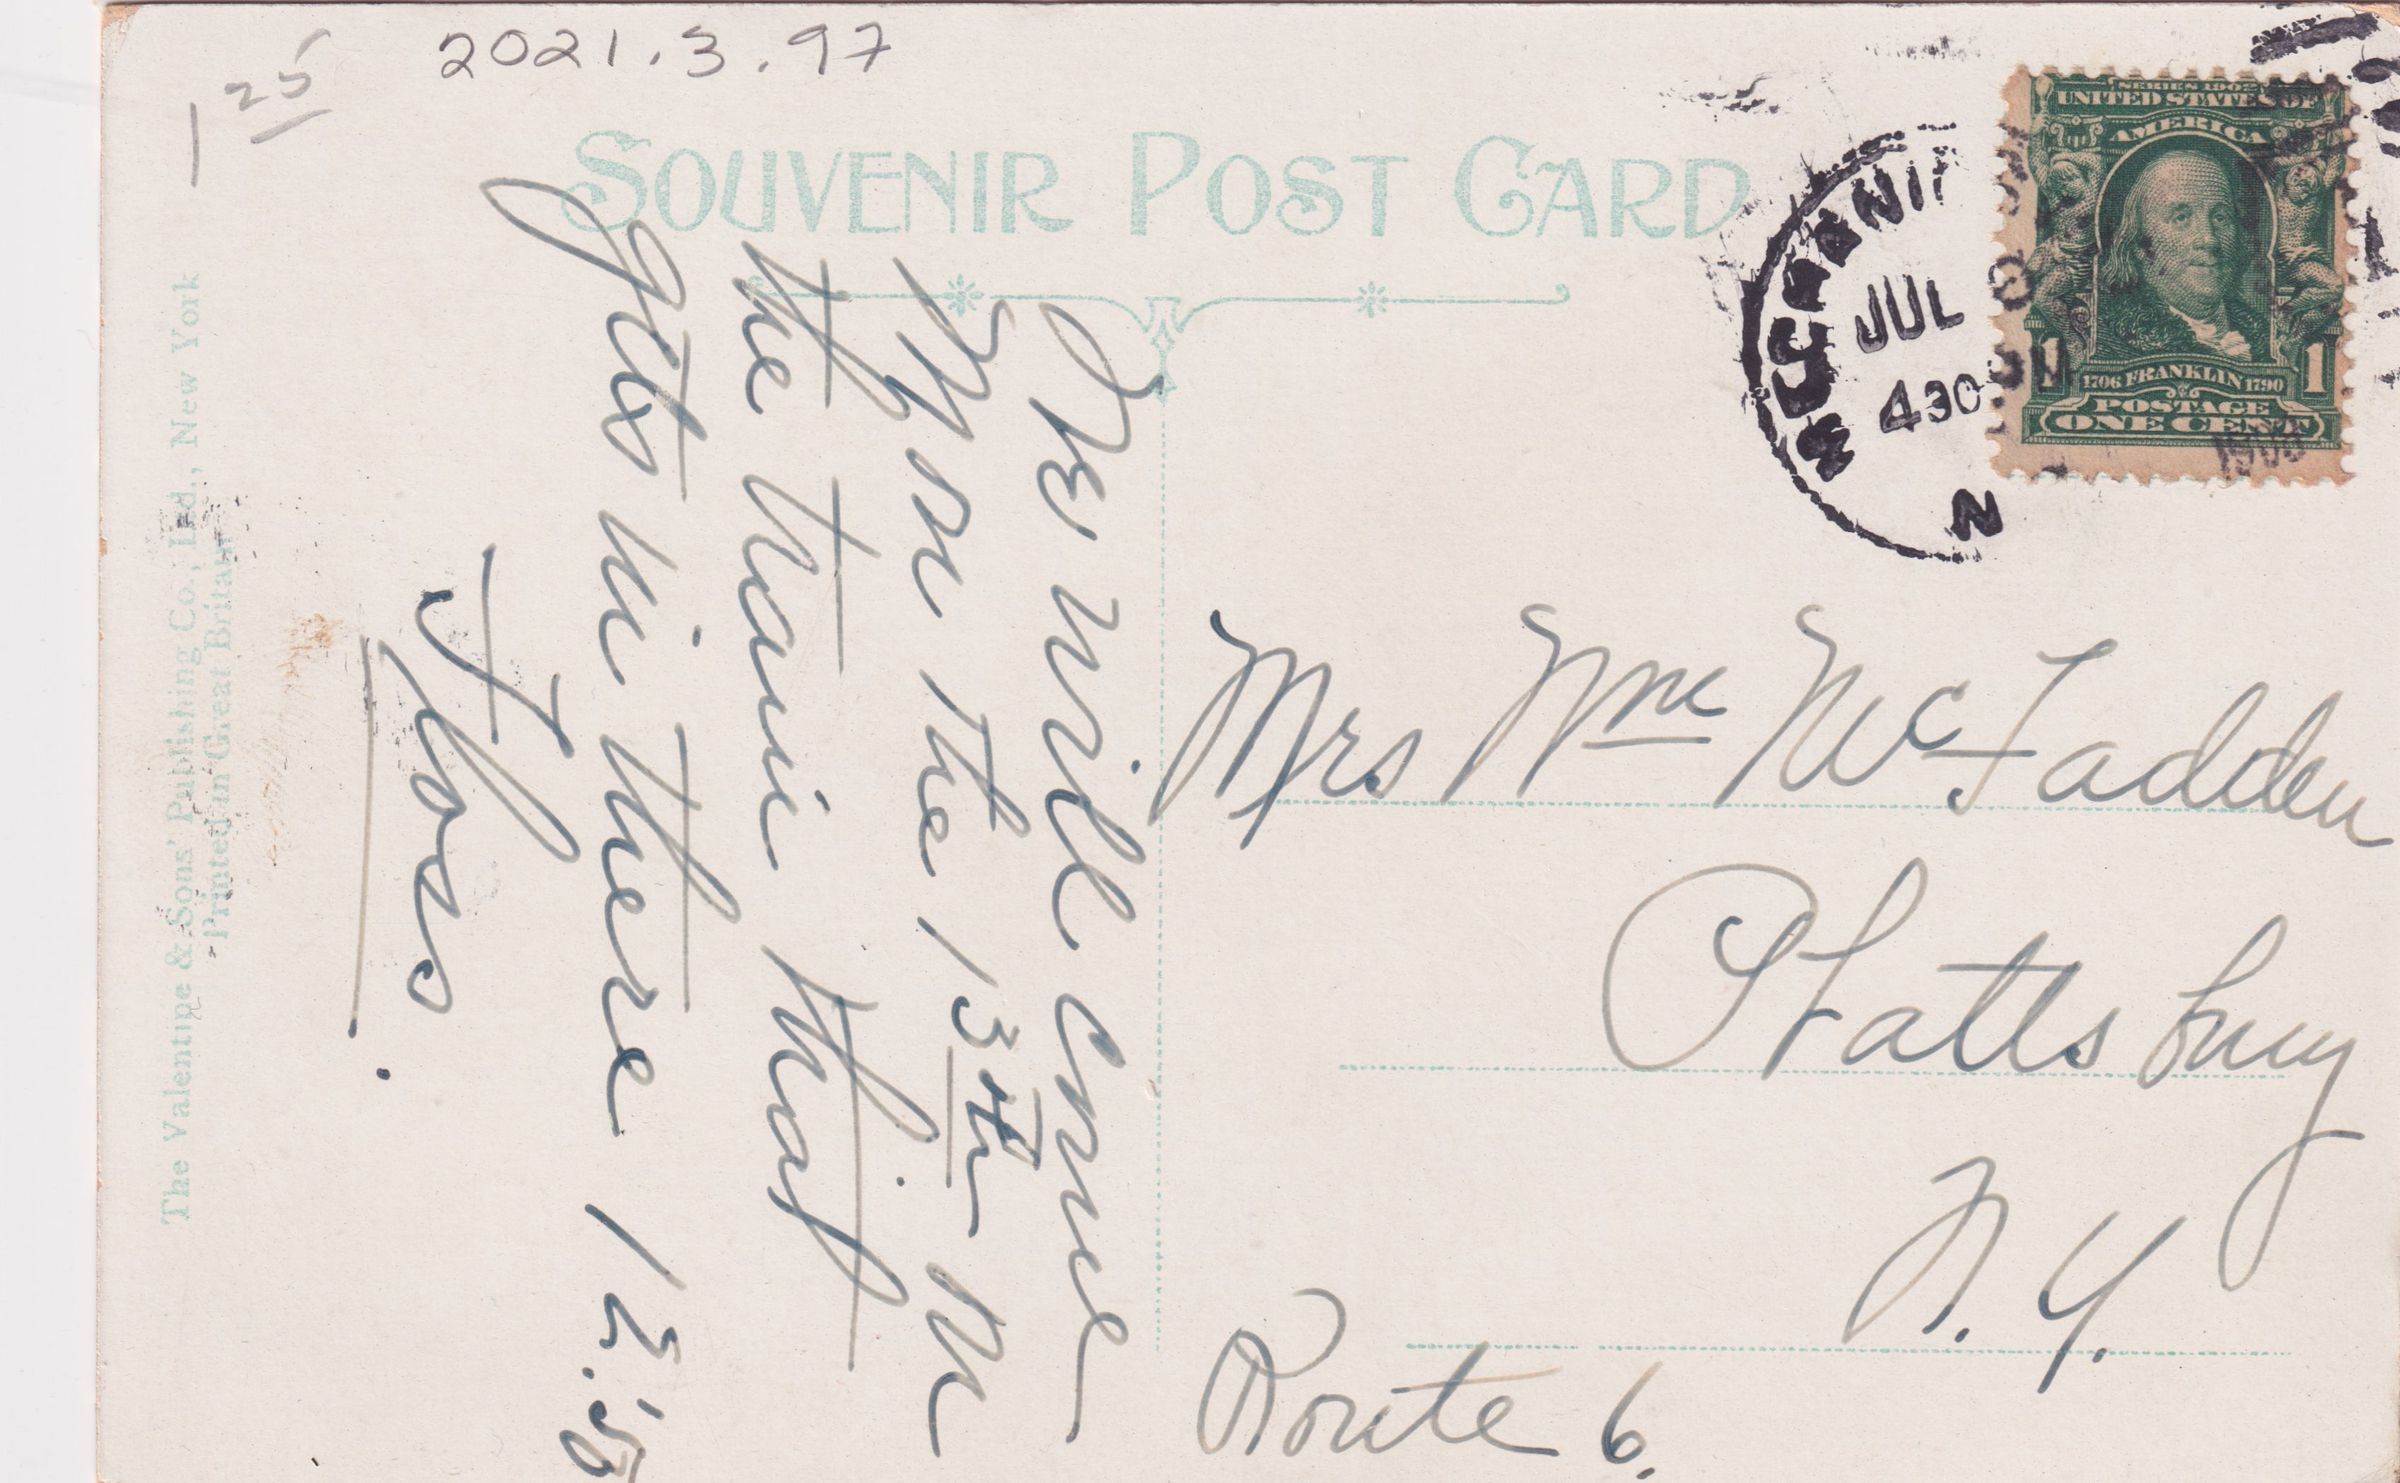 125
2021.3.97
SOUVENIR POST CARD
SERIES 1902
UNITED STATES OF
AMERICA
1 1
1706 FRANKLIN 1790
POSTAGE
ONE CENT
JUL
430
N
We will come
Mon the 13th on
the train that
gets in there 12.50
Floss.
Mrs Wm McFadden
Plattsburg
N.Y.
Route 6.
The Valentine & Sons' Publishing Co., Ltd., New York
Printed in Great Britain